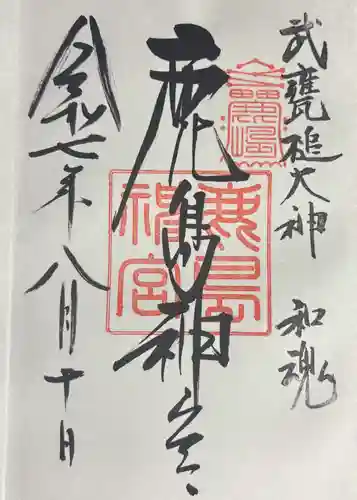 武甕槌大神 和魂
鹿島神宮
鹿島神宮
令和七年八月十日